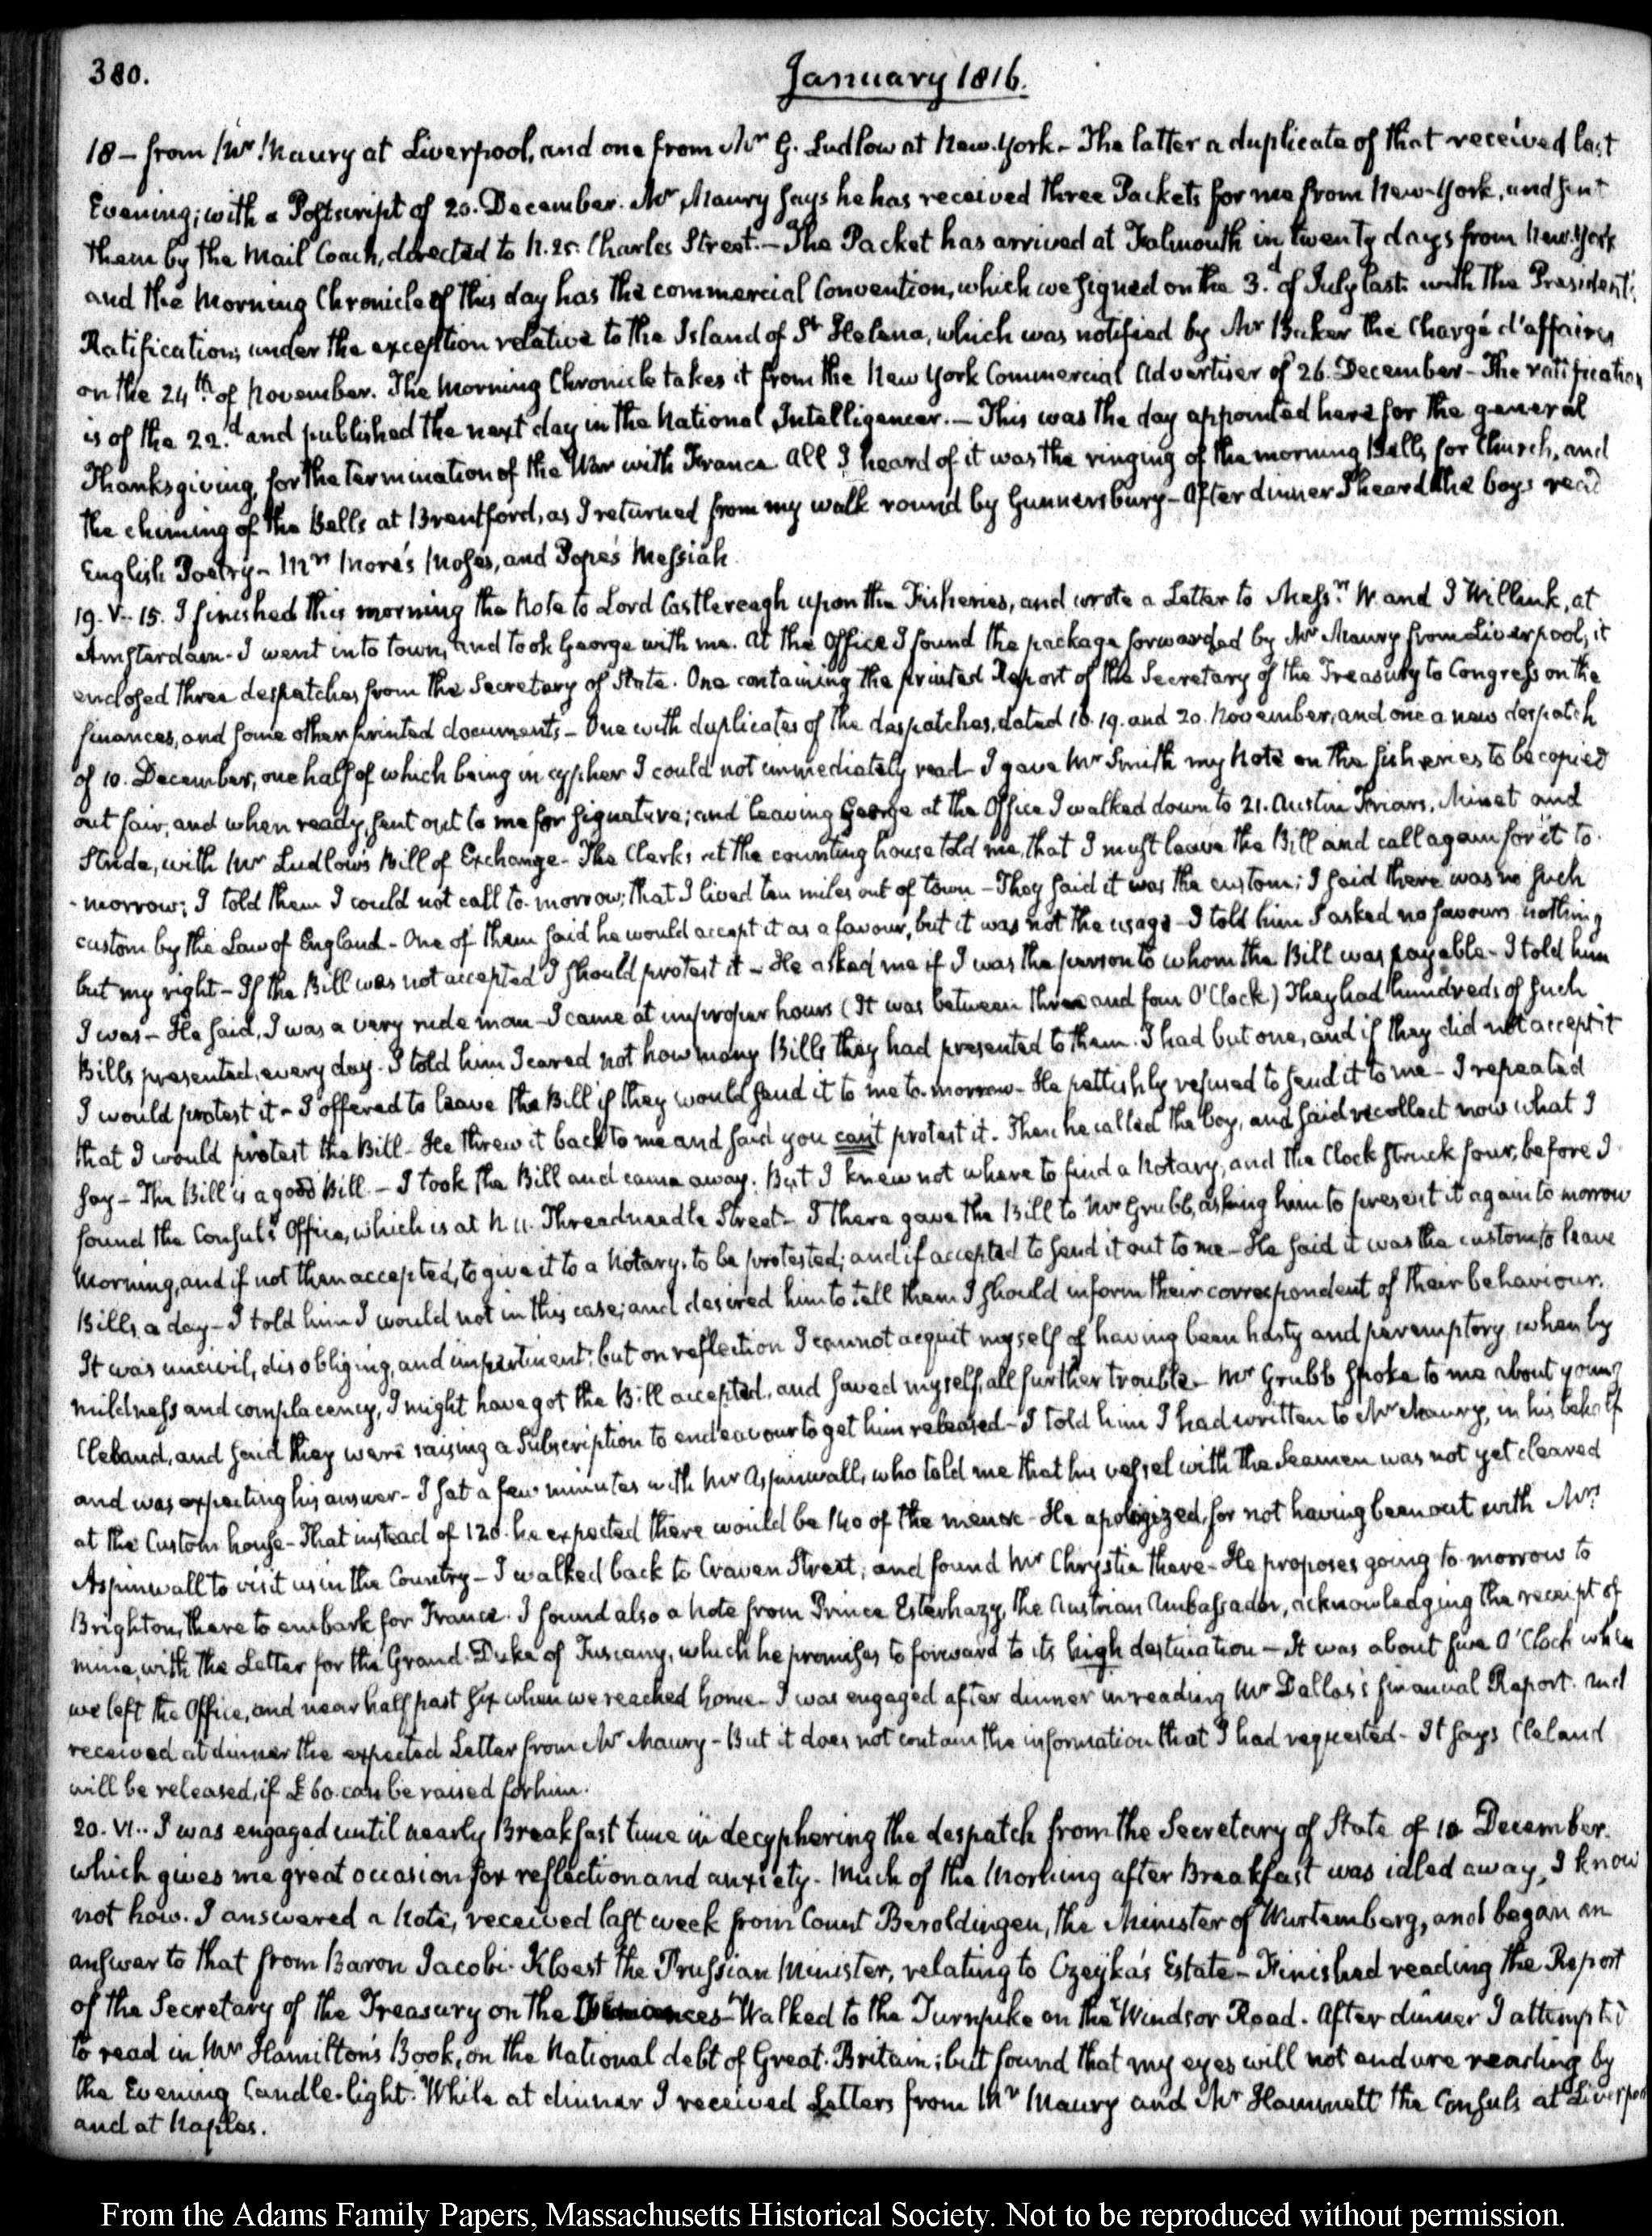 380.
January 1816.
18 – from Mr. Maury at Liverpool, and one from Mr G. Ludlow at New-York – The latter a duplicate of that received last
Evening; with a Postscript of 20. December. Mr Maury says he has received three Packets for me from New-York, and sent
them by the Mail Coach, directed to N. 25. Charles Street. – The Packet has arrived at Falmouth in twenty days from New-York
and the Morning Chronicle of this day has the commercial Convention, which we signed on the 3.d of July last with the President's
Ratification; under the exception relative to the Island of St Helena, which was notified by Mr Baker the Chargé d'affaires
on the 24th. of November. The Morning Chronicle takes it from the New York Commercial Advertiser of 26. December – The ratification
is of the 22.d and published the next day in the National Intelligencer. – This was the day appointed here for the general
Thanksgiving, for the termination of the War with France. All I heard of it was the ringing of the morning Bells for Church, and
the chiming of the Bells at Brentford, as I returned from my walk round by Gunnersbury – After dinner I heard the boys read
English Poetry – Mrs More's Moses, and Pope's Messiah.
19. V.. 15. I finished this morning the Note to Lord Castlereagh upon the Fisheries, and wrote a Letter to Messrs. W. and J Willink, at
Amsterdam – I went into town, and took George with me. At the Office I found the package forwarded by Mr Maury from Liverpool; it
enclosed three despatches from the Secretary of State. One containing the printed Report of the Secretary of the Treasury to Congress on the
finances, and some other printed documents – One with duplicates of the despatches, dated 18. 19. and 20. November, and one a new despatch
of 10. December, one half of which being in cypher I could not immediately read – I gave Mr Smith my Note on the fisheries to be copied
out fair, and when ready, sent out to me for signature; and leaving George at the Office I walked down to 21. Austin Friars, Minet and
Stride, with Mr Ludlow's Bill of Exchange – The Clerks at the counting house told me, that I must leave the Bill and call again for it to-
-morrow; I told them I could not call to-morrow; that I lived ten miles out of town – They said it was the custom; I said there was no such
custom by the Law of England – One of them said he would accept it as a favour, but it was not the usage – I told him I asked no favours nothing
but my right – If the Bill was not accepted I should protest it – He asked me if I was the person to whom the Bill was payable – I told him
I was – He said, I was a very rude man – I came at improper hours (It was between three and four O'Clock) They had hundreds of such
Bills presented, every day. I told him I cared not how many Bills they had presented to them. I had but one, and if they did not accept it
I would protest it – I offered to leave the Bill if they would send it to me to-morrow – He pettishly refused to send it to me – I repeated
that I would protest the Bill – He threw it back to me and said you can't protest it. Then he called the boy, and said recollect now what I
say – The Bill is a good Bill – I took the Bill and came away. But I knew not where to find a Notary, and the Clock struck four, before I
found the Consul's Office, which is at N 11. Threadneedle Street – I there gave the Bill to Mr Grubb, asking him to present it again to morrow
Morning, and if not then accepted, to give it to a Notary, to be protested; and if accepted to send it out to me – He said it was the custom to leave
Bills, a day – I told him I would not in this case; and desired him to tell them I should inform their correspondent of their behaviour.
It was uncivil, disobliging, and impertinent; but on reflection I cannot acquit myself of having been hasty and peremptory, when by
mildness and complacency, I might have got the Bill accepted, and saved myself, all further trouble – Mr Grubb spoke to me about young
Cleland, and said they were raising a Subscription to endeavour to get him released – I told him I had written to Mr Maury, in his behalf
and was expecting his answer – I sat a few minutes with Mr Aspinwall, who told me that his vessel with the Seamen was not yet cleared
at the Custom house – That instead of 120. he expected there would be 140 of the men – He apologized, for not having been out with Mrs
Aspinwall to visit us in the Country – I walked back to Craven Street, and found Mr Chrystie there – He proposes going to-morrow to
Brighton, there to embark for France. I found also a Note from Prince Esterhazy, the Austrian Ambassador, acknowledging the receipt of
mine, with the Letter for the Grand-Duke of Tuscany, which he promises to forward to its high destination – It was about five O'Clock when
we left the Office, and near half past six when we reached home – I was engaged after dinner in reading Mr Dallas's financial Report. And
received at dinner the expected Letter from Mr Maury – But it does not contain the information that I had requested – It says Cleland
will be released, if £60. can be raised for him.
20. VI.. I was engaged until nearly Breakfast time in decyphering the despatch from the Secretary of State of 10 December.
which gives me great occasion for reflection and anxiety. Much of the Morning after Breakfast was idled away, I know
not how. I answered a Note, received last week from Count Beroldingen, the Minister of Wurtemberg, and began an
answer to that from Baron Jacobi-Kloest the Prussian Minister, relating to Czeyka's Estate – Finished reading the Report
of the Secretary of the Treasury on the – Walked to the Turnpike on the Windsor Road. After dinner I attempted
to read in Mr Hamilton's Book, on the National debt of Great-Britain; but found that my eyes will not endure reading by
the Evening Candle-light. While at dinner I received Letters from Mr Maury and Mr Hammett the Consuls at Liverpool
and at Naples.
From the Adams Family Papers, Massachusetts Historical Society. Not to be reproduced without permission.